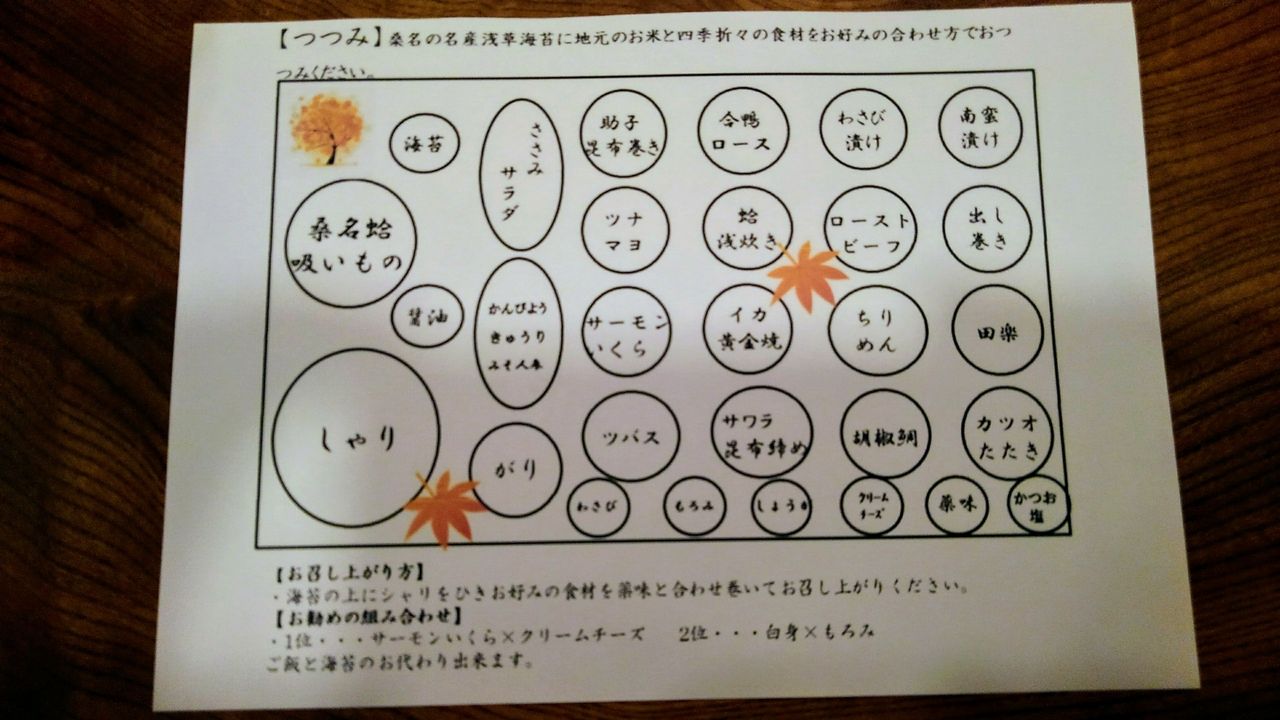 【つつみ】桑名の名産浅草海苔に地元のお米と四季折々の食材をお好みの合わせ方でおつ
つみください。
海苔
ささみ
サラダ
助子
昆布巻き
合鴨
ロース
わさび
漬け
南蛮
漬け
桑名蛤
吸いもの
ツナ
マヨ
蛤
浅炊き
ロースト
ビーフ
出し
巻き
醤油
かんぴょう
きゅうり
みそ人参
サーモン
いくら
イカ
黄金焼
ちり
めん
田楽
しゃり
がり
ツバス
サワラ
昆布締め
胡椒鯛
カツオ
たたき
わさび
もろみ
しょうが
クリーム
チーズ
薬味
かつお
塩
【お召し上がり方】
・海苔の上にシャリをひきお好みの食材を薬味と合わせ巻いてお召し上がりください。
【お勧めの組み合わせ】
・1位・・・サーモンいくら×クリームチーズ 2位・・・白身×もろみ
ご飯と海苔のお代わり出来ます。